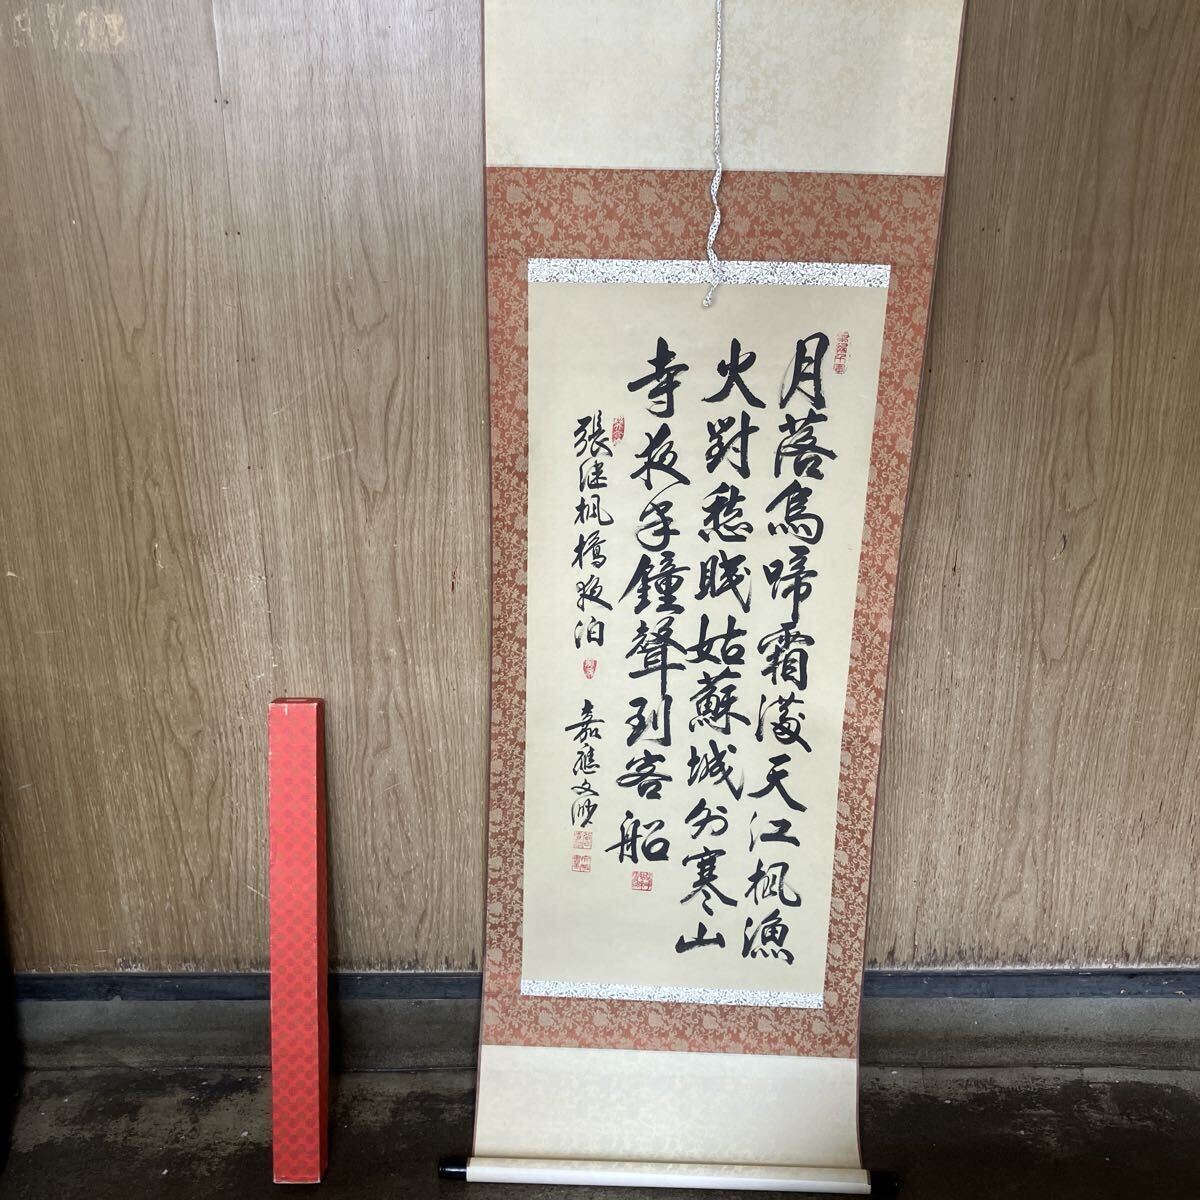 月落烏啼霜滿天江楓漁
火對愁眠姑蘇城外寒山
寺夜半鐘聲到客船
張继楓橋夜泊
嘉應文沙